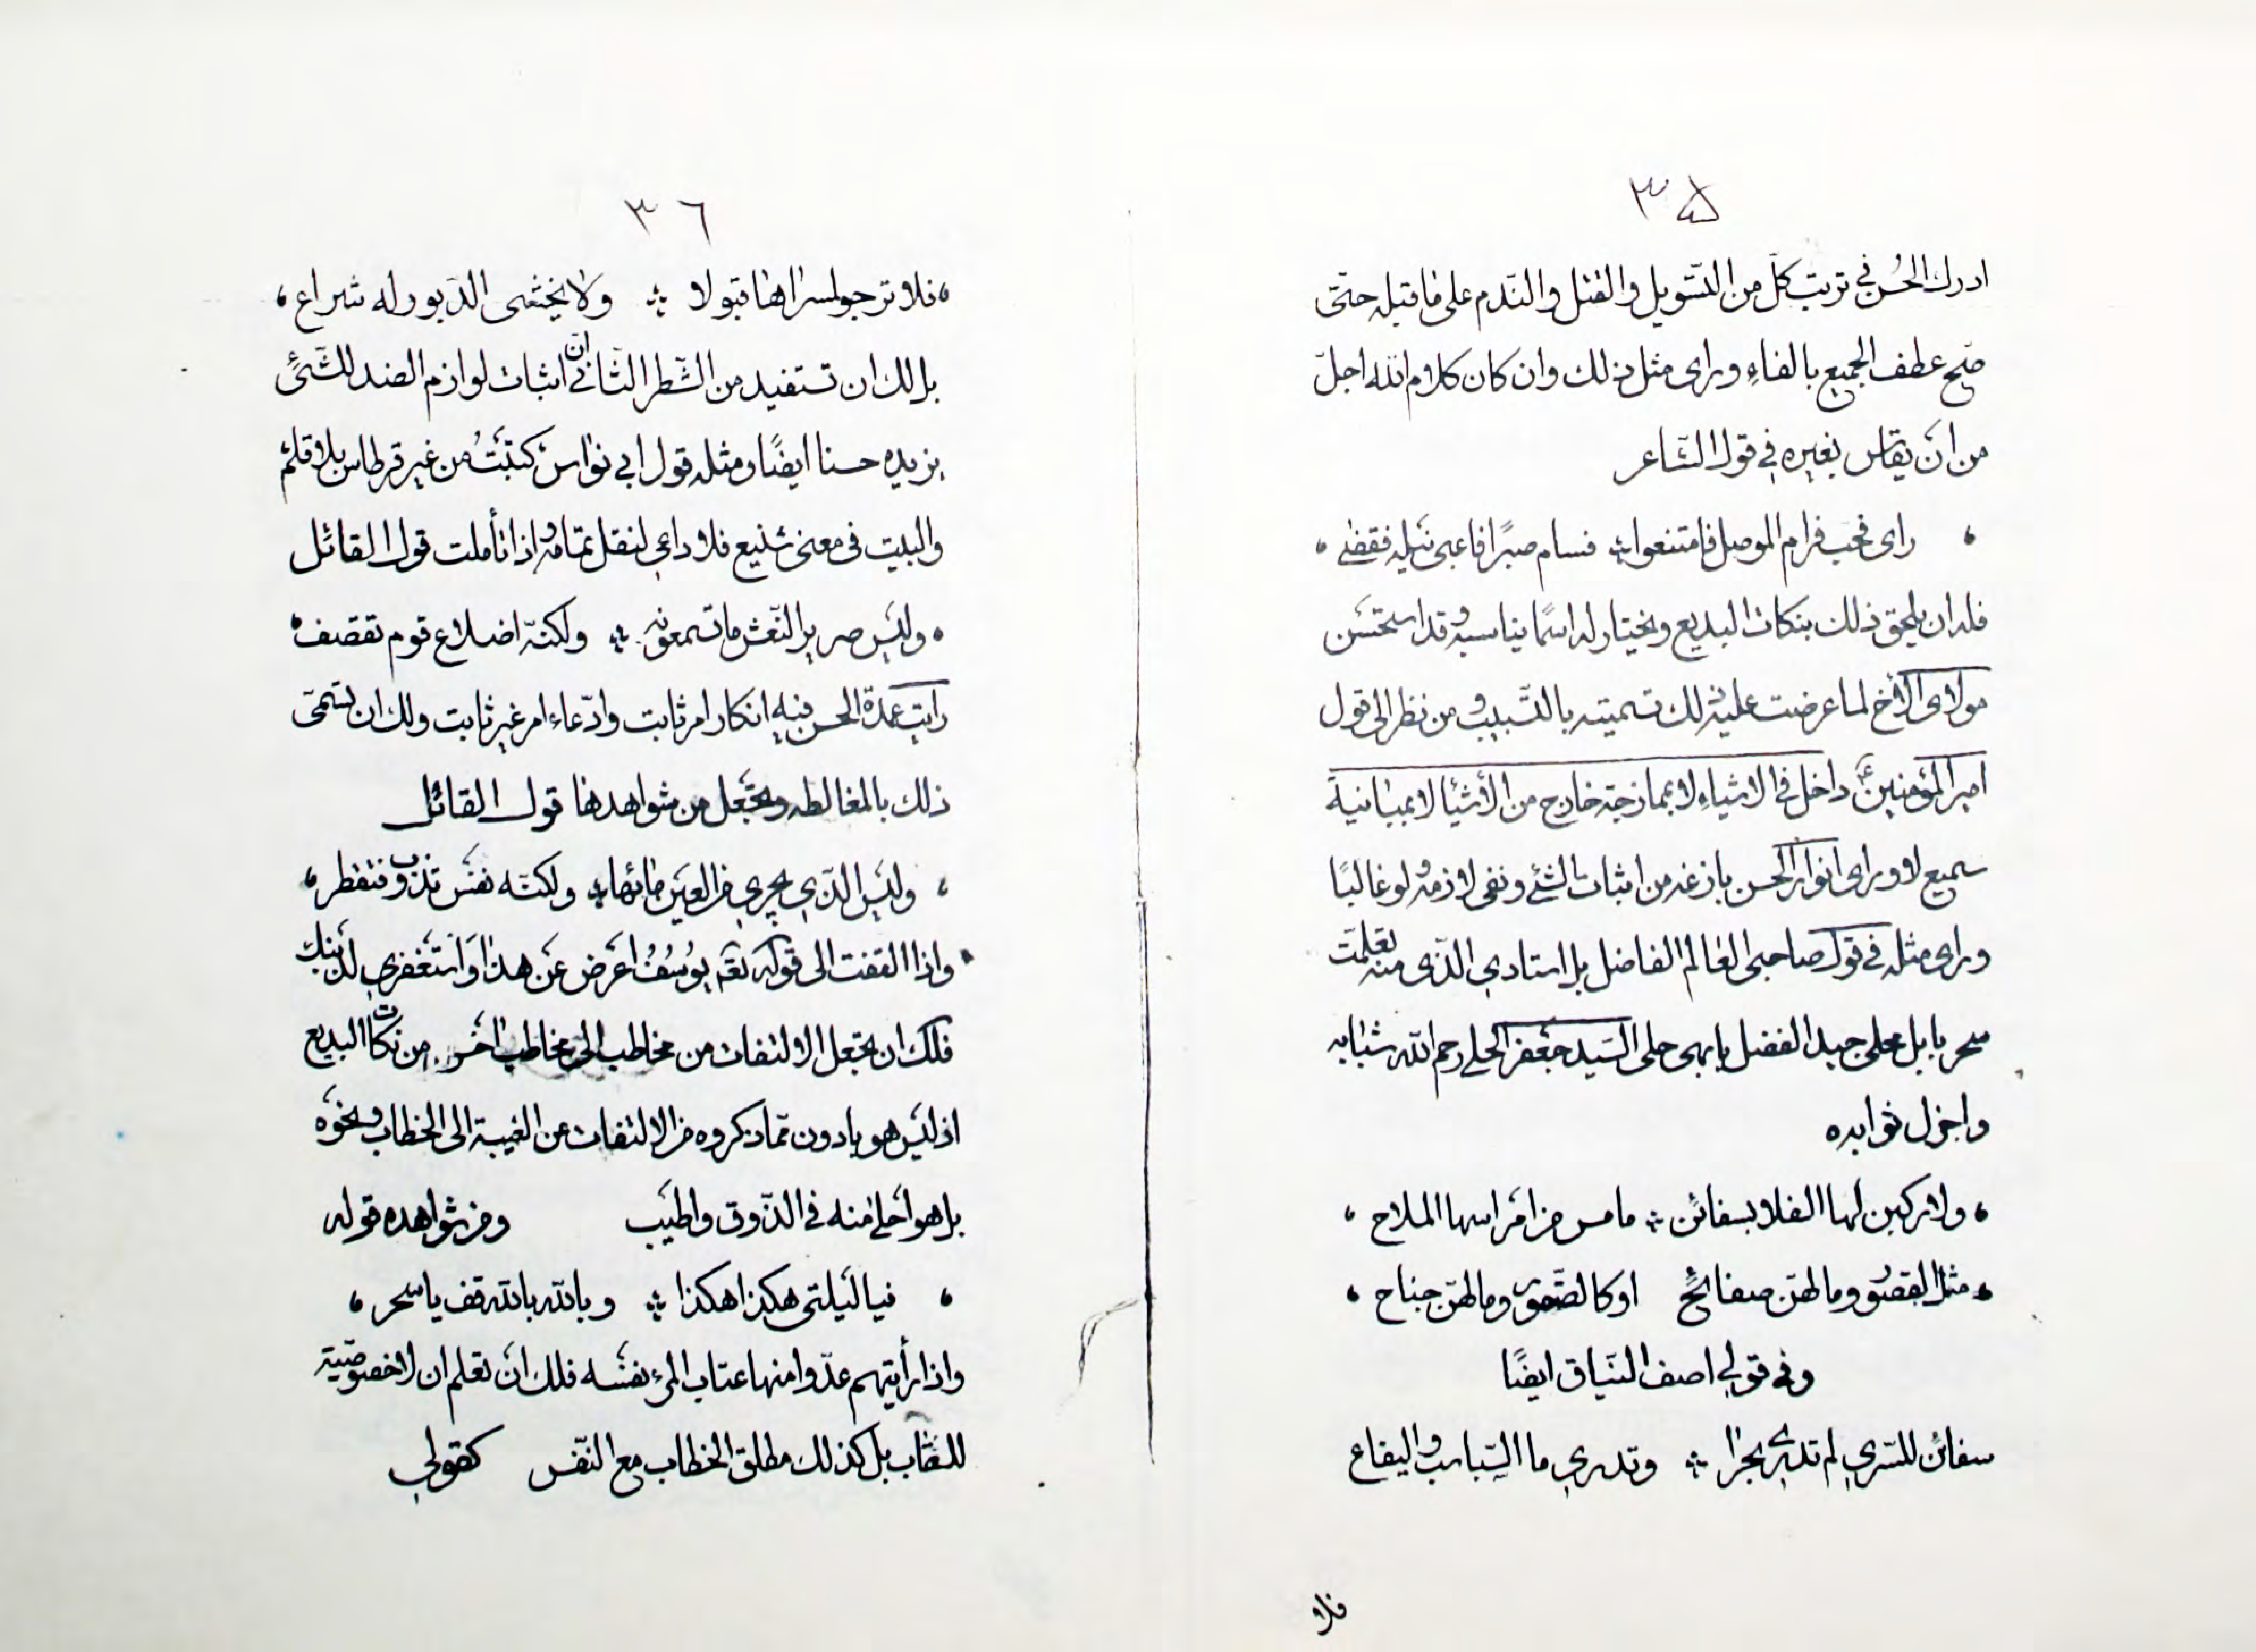 ٣٥
ادرك الحُسن في ترتب كلّ من التسويل والقتل والنّدم على ما قبله حتّى
صحّ عطف الجميع بالفاءِ وراى مثل ذلك وان كان كلام الله اجلّ
من انَ يقاس بغيره في قول الشاعر
، راى فحب فرام الوصل فامتنعوا ؞ فسام صبرًا فاعيى نيله فقضى ،
فله ان يلحق ذلك بنكات البديع ويختار له اسمًا يناسبه وقد استحسَن
مولاى الأخ لما عرضت عليه ذلك تسميته بالتسبيب ومن نظر الى قول
امير المؤمنينَ ع داخل في الاشياءِ لا بممازجة خارج من الأشيا لا بمباينة
سميع لا وراى انوار الحسن بازغة من اثبات الشئ ونفى لازمه ولو غالبًا
وراى مثله في قول صاحبى العالم الفاضل بل استادي الّذى منه تعلمت
سحر بابل محلى جيد الفضل بابهى حلى السَيد جَعفر الحلي رحم الله شبابه
واجزل ثوابه
، ولاركبن لها الفلا بسفائن ؞ ما مس من امَراسها الملاح ،
، مثل القصُور وما لهنّ صفائحٌ اوكالصّقور وما لهنّ جناح ،
وفى قولي اصف النيَاق ايضًا
سفائن للسّري لم تدر بحرًا ؞ وتدري ما السّباسب واليفاع
فلا
٣٦
، فلا ترجو لمسراها قبولا ؞ ولا يخشى الدّبور له شراع ،
بل لك ان تستفيد من الشّطر الثّاني انّ اثبات لوازم الضد للشّئ
يزيده حسنا ايضًا ومثله قول ابي نواس كتبَتُ من غير قرطاس بلا قلم
والبيت فى معنى شنيع فلا داعي لنقل تمامه واذا تأملت قول القائل
، وليس صرير النّعش ما تسمعونه ؞ ولكنّه اضلاع قوم تقصف ،
رايت عمدة الحسن فيه انكار امر ثابت وادّعاء امر غير ثابت ولك ان تسمّى
ذلك بالمغالطه وتجَعل من شواهدها قول القائل
، وليَس الّذي يجري من العين مائها ؞ ولكنّه نفسَ تذوب وتقطر ،
واذا التفت الى قوله تعَم يوُسُفُ اعَرض عَن هذا وَاستَغفري لذَنبك
فلك ان تجَعل الالتفات من مخاطب الى مخاطب اخَر من نكات البديع
اذ ليَس هو بادون ممّا ذكروه من الالتفات عن الغيبة الى الخطاب ونحَوه
بل هو احَلى منه فى الذّوق واطيَب ومن شواهده قوله
، فيا ليَلتى هكذا هكذا ؞ وبالله بالله قف يا سحر ،
واذا رأيتهم عدّوا منها عتاب المرء نفسَه فلك انَ تعَلم ان لا خصوصيّة
للعتاب بل كذلك مطلق الخطاب مع النّفس كقولي